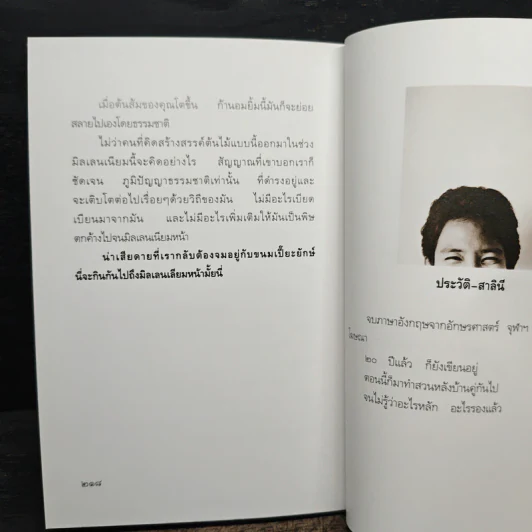 เมื่อต้นส้มของคุณโตขึ้น ก้านอมยิ้มนี้มันก็จะย่อย
สลายไปเองโดยธรรมชาติ
ไม่ว่าคนที่คิดสร้างสรรค์ต้นไม้แบบนี้ออกมาในช่วง
มิลเลนเนียมนี้จะคิดอย่างไร สัญญาณที่เขาบอกเราก็
ชัดเจน ภูมิปัญญาธรรมชาติเท่านั้น ที่ดำรงอยู่และ
จะเติบโตต่อไปเรื่อยๆด้วยวิถีของมัน ไม่มีอะไรเบียด
เบียนมาจากมัน และไม่มีอะไรเพิ่มเติมให้มันเป็นพิษ
ตกค้างไปจนมิลเลนเนียมหน้า
น่าเสียดายที่เรากลับต้องจมอยู่กับขนมเปี๊ยะยักษ์
นี่จะกินกันไปถึงมิลเลนเลียมหน้ามั้ยนี่
๒๑๘
ประวัติ-สาลินี
จบภาษาอังกฤษจากอักษรศาสตร์ จุฬาฯ
โฆษณา
๒๐ ปีแล้ว ก็ยังเขียนอยู่
ตอนนี้ก็มาทำสวนหลังบ้านคู่กันไป
จนไม่รู้ว่าอะไรหลัก อะไรรองแล้ว